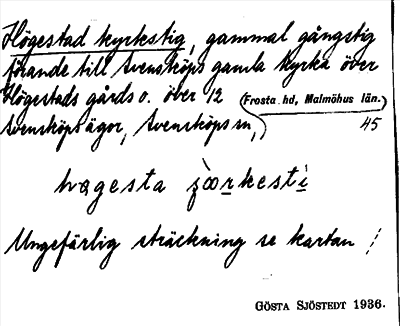 Högestad kyrkstig, gammal gångstig
förande till Svensköps gamla kyrka över
Högestads gårds o. över 12
(Frosta hd, Malmöhus län.)
Svensköps ägor, Svensköps sn,
45
hagesta
Ungefärlig sträckning se kartan
GÖSTA SJÖSTEDT 1936.